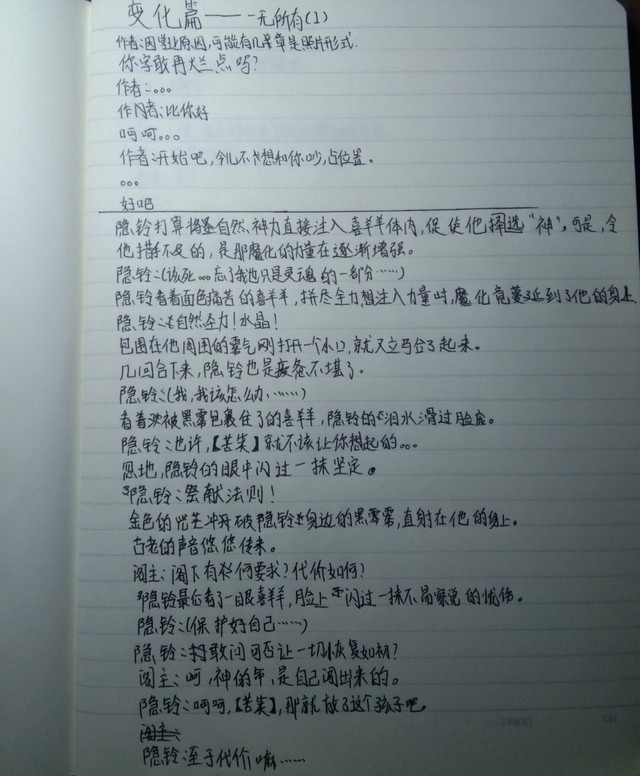 变化篇——一无所有(1)
作者:因学业原因,可能有几章是照片形式.
你字敢再烂点吗?
作者:。。。
作内者:比你好
呵呵。。。
作者:开始吧,今儿不想和你吵,占位置。
。。。
好吧
隐铃打算将自然神力直接注入喜羊羊体内,促使他择选“神”。可是,令
他措不及的,是那魔化的力量在逐渐增强。
隐铃:(该死。。。忘了我也只是灵魂的一部分……)
隐铃看着面色痛苦的喜羊羊,拼尽全力想注入力量时,魔化竟蔓延到了他的身上
隐铃:自然全力!水晶!
包围在他周围的雾气刚打开一个小口,就又立马合了起来。
几回合下来,隐铃也是疲惫不堪了。
隐铃:(我,我该怎么办……)
看着被黑雾包裹住了的喜羊羊,隐铃的泪水滑过脸庞。
隐铃:也许,【苦笑】就不该让你想起的。。。
忽地,隐铃的眼中闪过一抹坚定。
隐铃:祭献法则!
金色的光芒冲破隐铃身边的黑雾,直射在他的身上。
古老的声音悠悠传来。
阁主:阁下有何要求?代价如何?
隐铃最后看了一眼喜羊羊,脸上闪过一抹不易察觉的忧伤。
隐铃:(保护好自己……)
隐铃:敢问可否让一切恢复如初?
阁主:呵,神的年,是自己闯出来的。
隐铃:呵呵,【苦笑】,那就放了这个孩子吧。
隐铃:至于代价嘛……